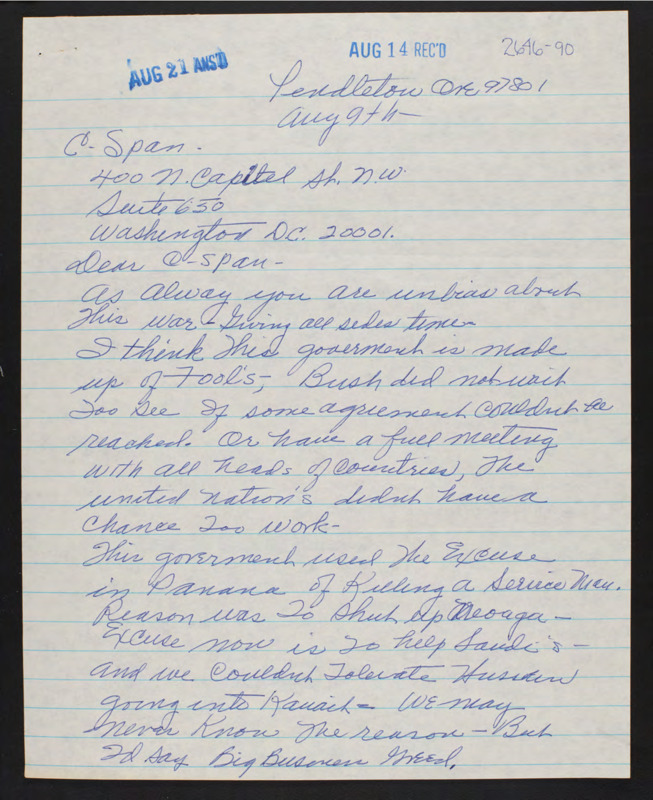 AUG 21 ANS'D
AUG 14 REC'D
2646-90
Pendleton Ore 97801
Aug 9th-
C-Span.
400 N. Capitol St. N.W.
Suite 650
Washington D.C. 20001.
Dear C-Span-
As Alway you are unbias about
This war - Giving all sides time-
I think This goverment is made
up of Fool's, Bush did not wait
Too See If some agriement couldnt be
reached. Or have a full meeting
with all heads of countries, The
united nation's didnt have a
chance Too work-
This goverment used The Excuse
in Panana of Killing a Service Man.
Reason was To Shut up
Excuse now is To help Saudi's-
and we couldnt Tolerate Husein
going into Kauait- We may
never Know The reason - But
I'd say Big Busines Greed.